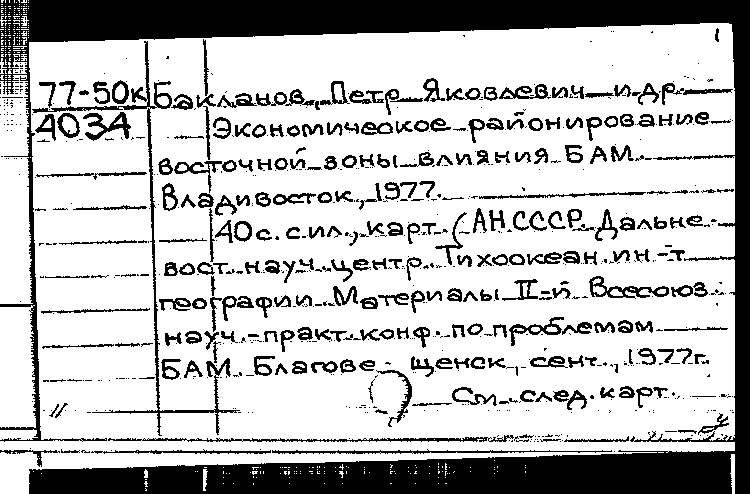 77-50к Бакланов, Петр Яковлевич и др.
4034 Экономическое районирование
восточной зоны влияния БАМ.
Владивосток, 1977.
40с. с ил., карт. (АН СССР. Дальне-
вост. науч. центр. Тихоокеан. ин-т
географии. Материалы II-й Всесоюз.
науч.-практ. конф. по проблемам
БАМ. Благове- щенск, сент., 1977г.
См. след. карт.